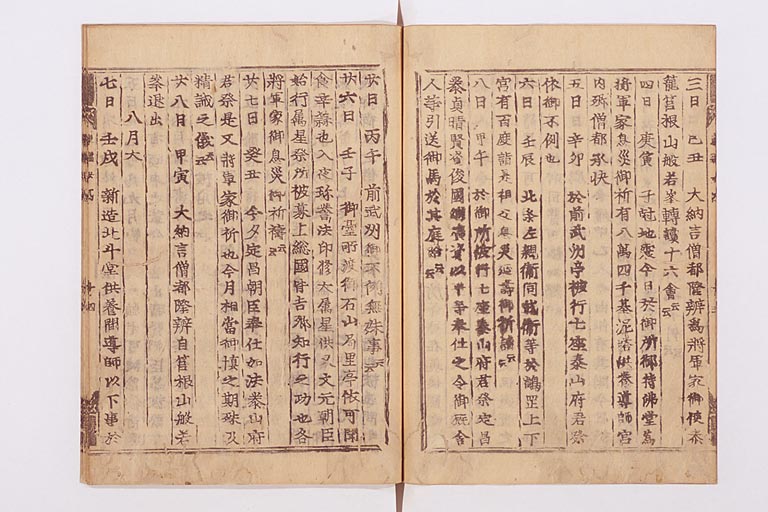 三日 己丑 大納言僧都隆辨為將軍家御使奉
籠筥根山般若峯轉讀十六會云云
四日 庚寅 子尅地震今日於御所御持佛堂為
將軍家息災御祈有八萬四千基泥塔供養導師宮
内卿僧都承快
五日 辛卯 於前武州亭被行七座泰山府君祭
依御不例也
六日 壬辰 北条左親衛同武衛等於鶴罡上下
宮有百度詣是相又息災延壽御祈請云云
八日 甲午 於御所被行七座泰山府君祭定昌
泰貞晴賢資俊國継廣資以平等奉仕之令御厩舎
人等引送御馬於其庭給云云
廿日 丙午 前武州御不例無殊事云云
廿六日 壬子 御臺所渡御石山局里亭依可聞
食幸〓也入夜珎譽法印修大属星供又文元朝臣
始行属星祭所被募上総國胥吉郷知行之功也各
將軍家御息災御祈禱云云
廿七日 癸丑 今夕定昌朝臣奉仕如法泰山府
君祭是又將軍家御祈也今月相當御慎之期殊以
精誠之儀云云
廿八日 甲寅 大納言僧都隆辨自筥根山般若
峯退出
八月大
七日 壬戌 新造北斗堂供養間導師以下事於